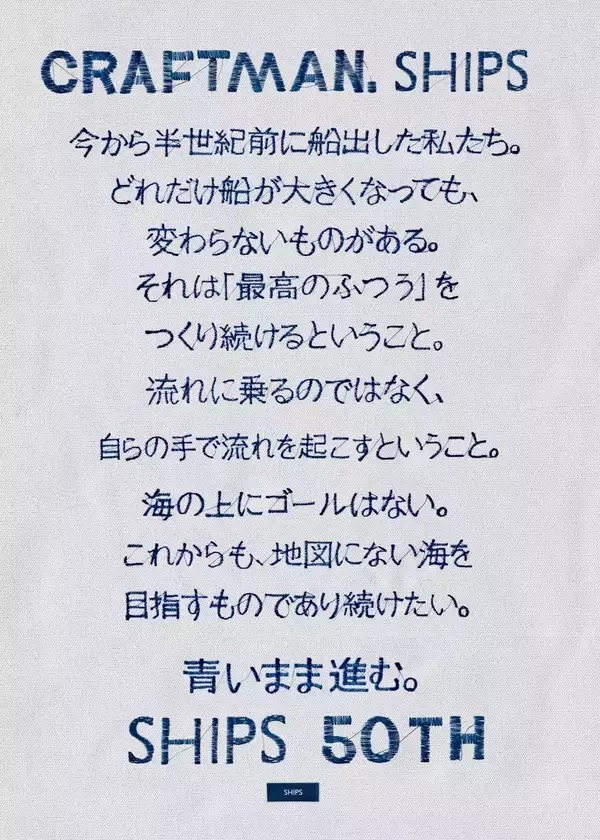 CRAFTMAN. SHIPS
今から半世紀前に船出した私たち。
どれだけ船が大きくなっても、
変わらないものがある。
それは「最高のふつう」を
つくり続けるということ。
流れに乗るのではなく、
自らの手で流れを起こすということ。
海の上にゴールはない。
これからも、地図にない海を
目指すものであり続けたい。
青いまま進む。
SHIPS 50TH
SHIPS